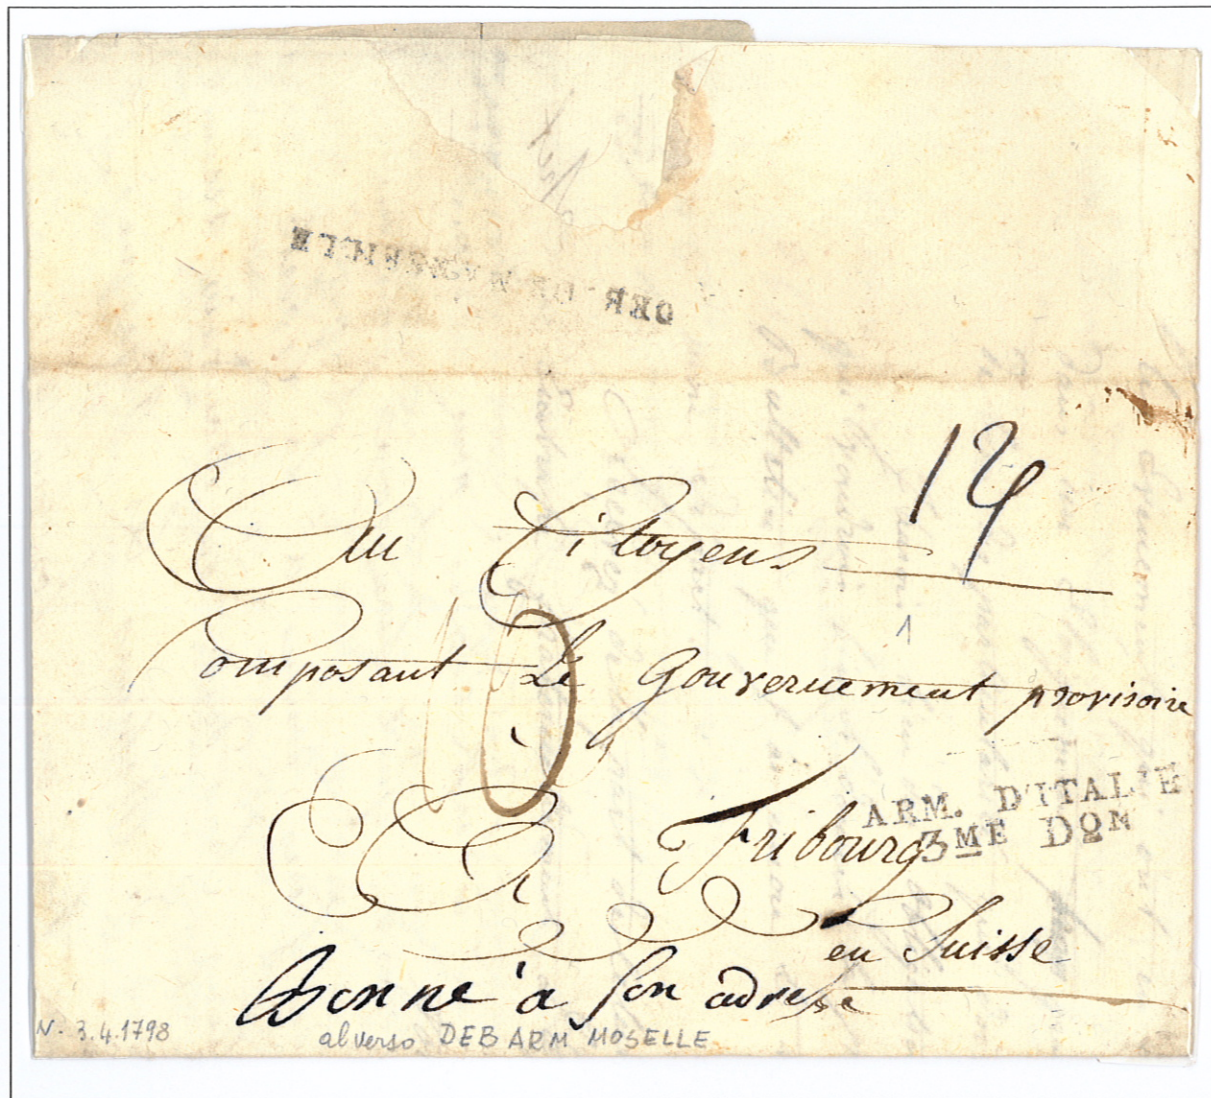 DEB. DE MARSEILLE
12
Aux Citoyens
1
Composant Le Gouvernement provisoire
10
ARM. D'ITALIE
3ME DON
A Fribourg
en Suisse
Bonne à son adresse
N. 3.4.1798
al verso DEB ARM MOSELLE